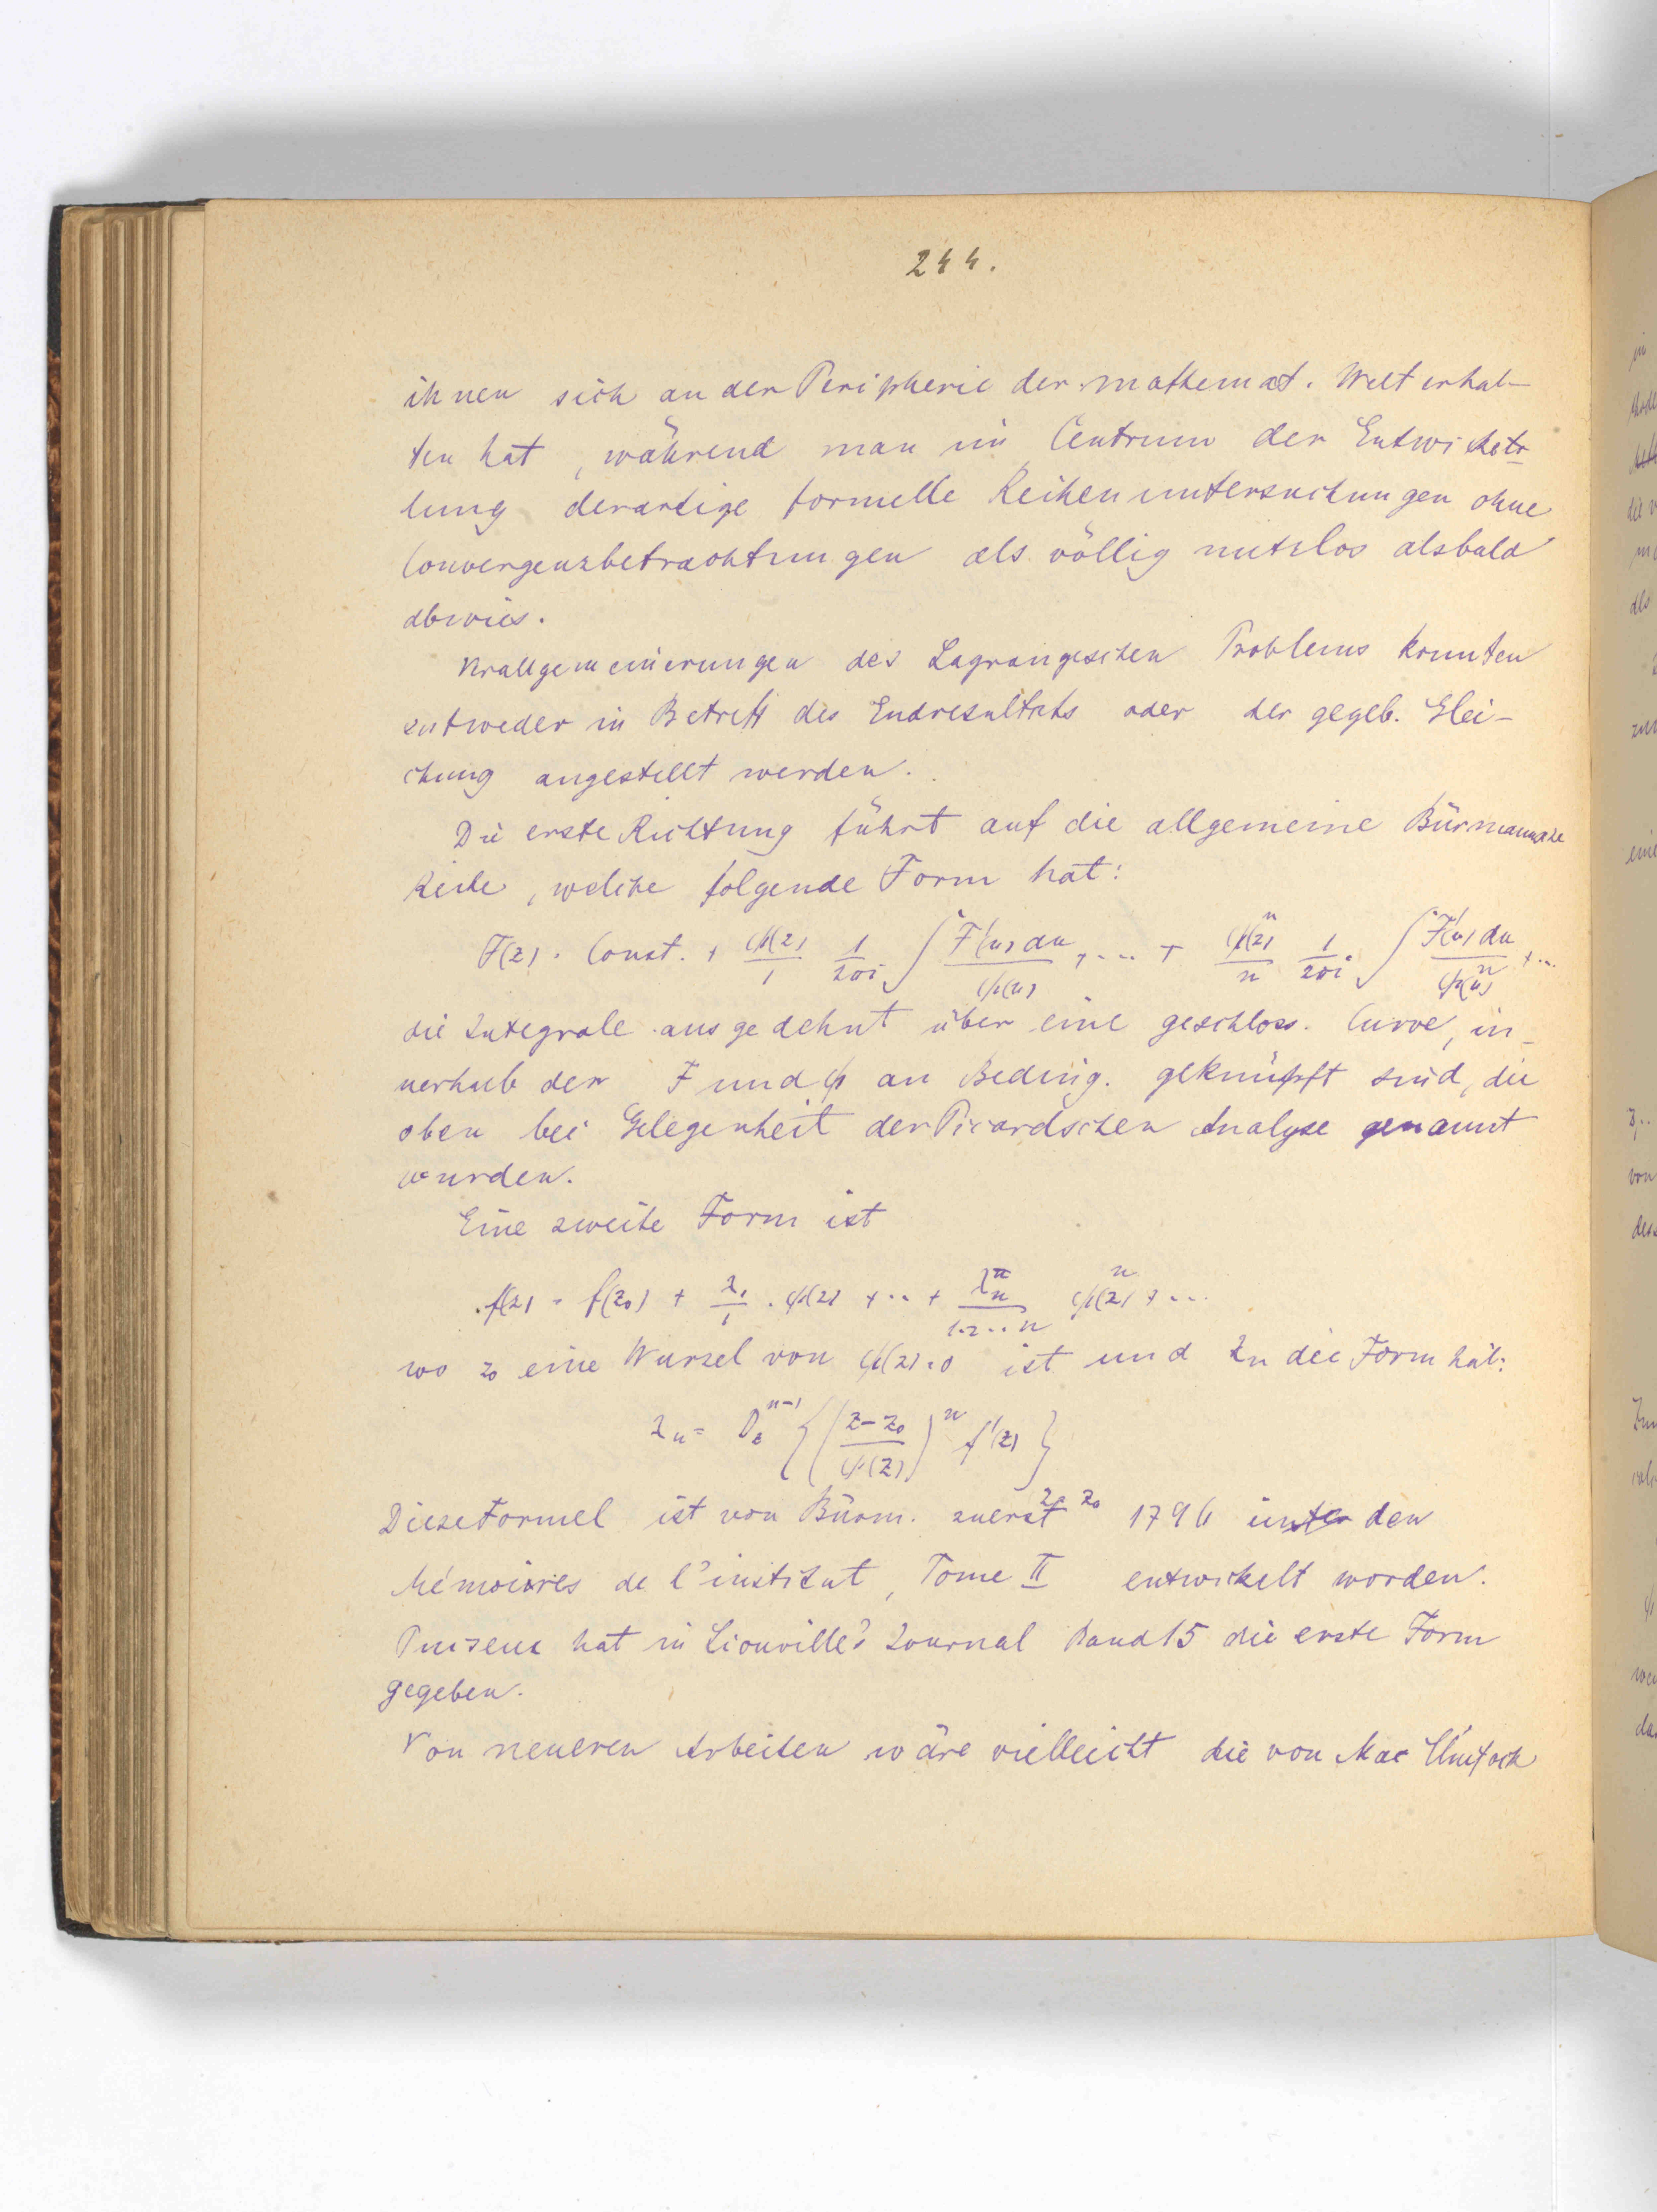 244.
ihnen sich an der Peripherie der mathemat. Welt erhal-
ten hat, während man im Centrum der Entwicke-
lung derartige formelle Reihenuntersuchungen ohne
Convergenzbetrachtungen als völlig nutzlos alsbald
abwies.
Verallgemeinerungen des Lagrangeschen Problems konnten
entweder in Betreff des Endresultats oder der gegeb. Glei-
chung angestellt werden.
Die erste Richtung führt auf die allgemeine Bürmannsche
Reihe, welche folgende Form hat:
F(z) = Const. + ψ(z)/1 1/2πi ∫ F'(u) du/ψ(u) + ... + ψ^n(z)/n 1/2πi ∫ F'(u) du/ψ^n(u) + ...
die Integrale ausgedehnt über eine geschloss. Curve, in-
nerhalb der F und ψ an Beding. geknüpft sind, die
oben bei Gelegenheit der Picardschen Analyse genannt
wurden.
Eine zweite Form ist
f(z) = f(z₀) + λ₁/1 · ψ(z) + ... + λₙ/1·2...n ψ^n(z) + ...
wo z₀ eine Wurzel von ψ(z)=0 ist und λₙ die Form hat:
λₙ = D_z^{n-1} {((z-z₀)/ψ(z))^n f'(z)} z = z₀
Diese Formel ist von Bürm. zuerst 1796 in den
Mémoires de l'institut, Tome II entwickelt worden.
Puiseux hat in Liouville's Journal Band 15 die erste Form
gegeben.
Von neueren Arbeiten wäre vielleicht die von Mac